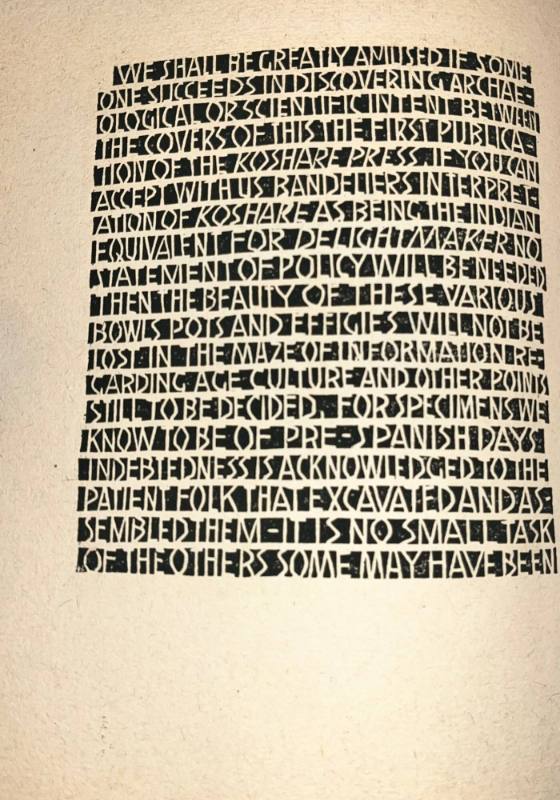 WE SHALL BE GREATLY AMUSED IF SOME
ONE SUCCEEDS IN DISCOVERING ARCHAE-
OLOGICAL OR SCIENTIFIC INTENT BETWEEN
THE COVERS OF THIS THE FIRST PUBLICA-
TION OF THE KOSHARE PRESS IF YOU CAN
ACCEPT WITH US BANDELIERS INTERPRET-
ATION OF KOSHARE AS BEING THE INDIAN
EQUIVALENT FOR DELIGHT MAKER NO
STATEMENT OF POLICY WILL BE NEEDED
THEN THE BEAUTY OF THESE VARIOUS
BOWLS POTS AND EFFIGIES WILL NOT BE
LOST IN THE MAZE OF INFORMATION RE-
GARDING AGE CULTURE AND OTHER POINTS
STILL TO BE DECIDED. FOR SPECIMENS WE
KNOW TO BE OF PRE-SPANISH DAYS
INDEBTEDNESS IS ACKNOWLEDGED TO THE
PATIENT FOLK THAT EXCAVATED AND AS-
SEMBLED THEM - IT IS NO SMALL TASK
OF THE OTHERS SOME MAY HAVE BEEN